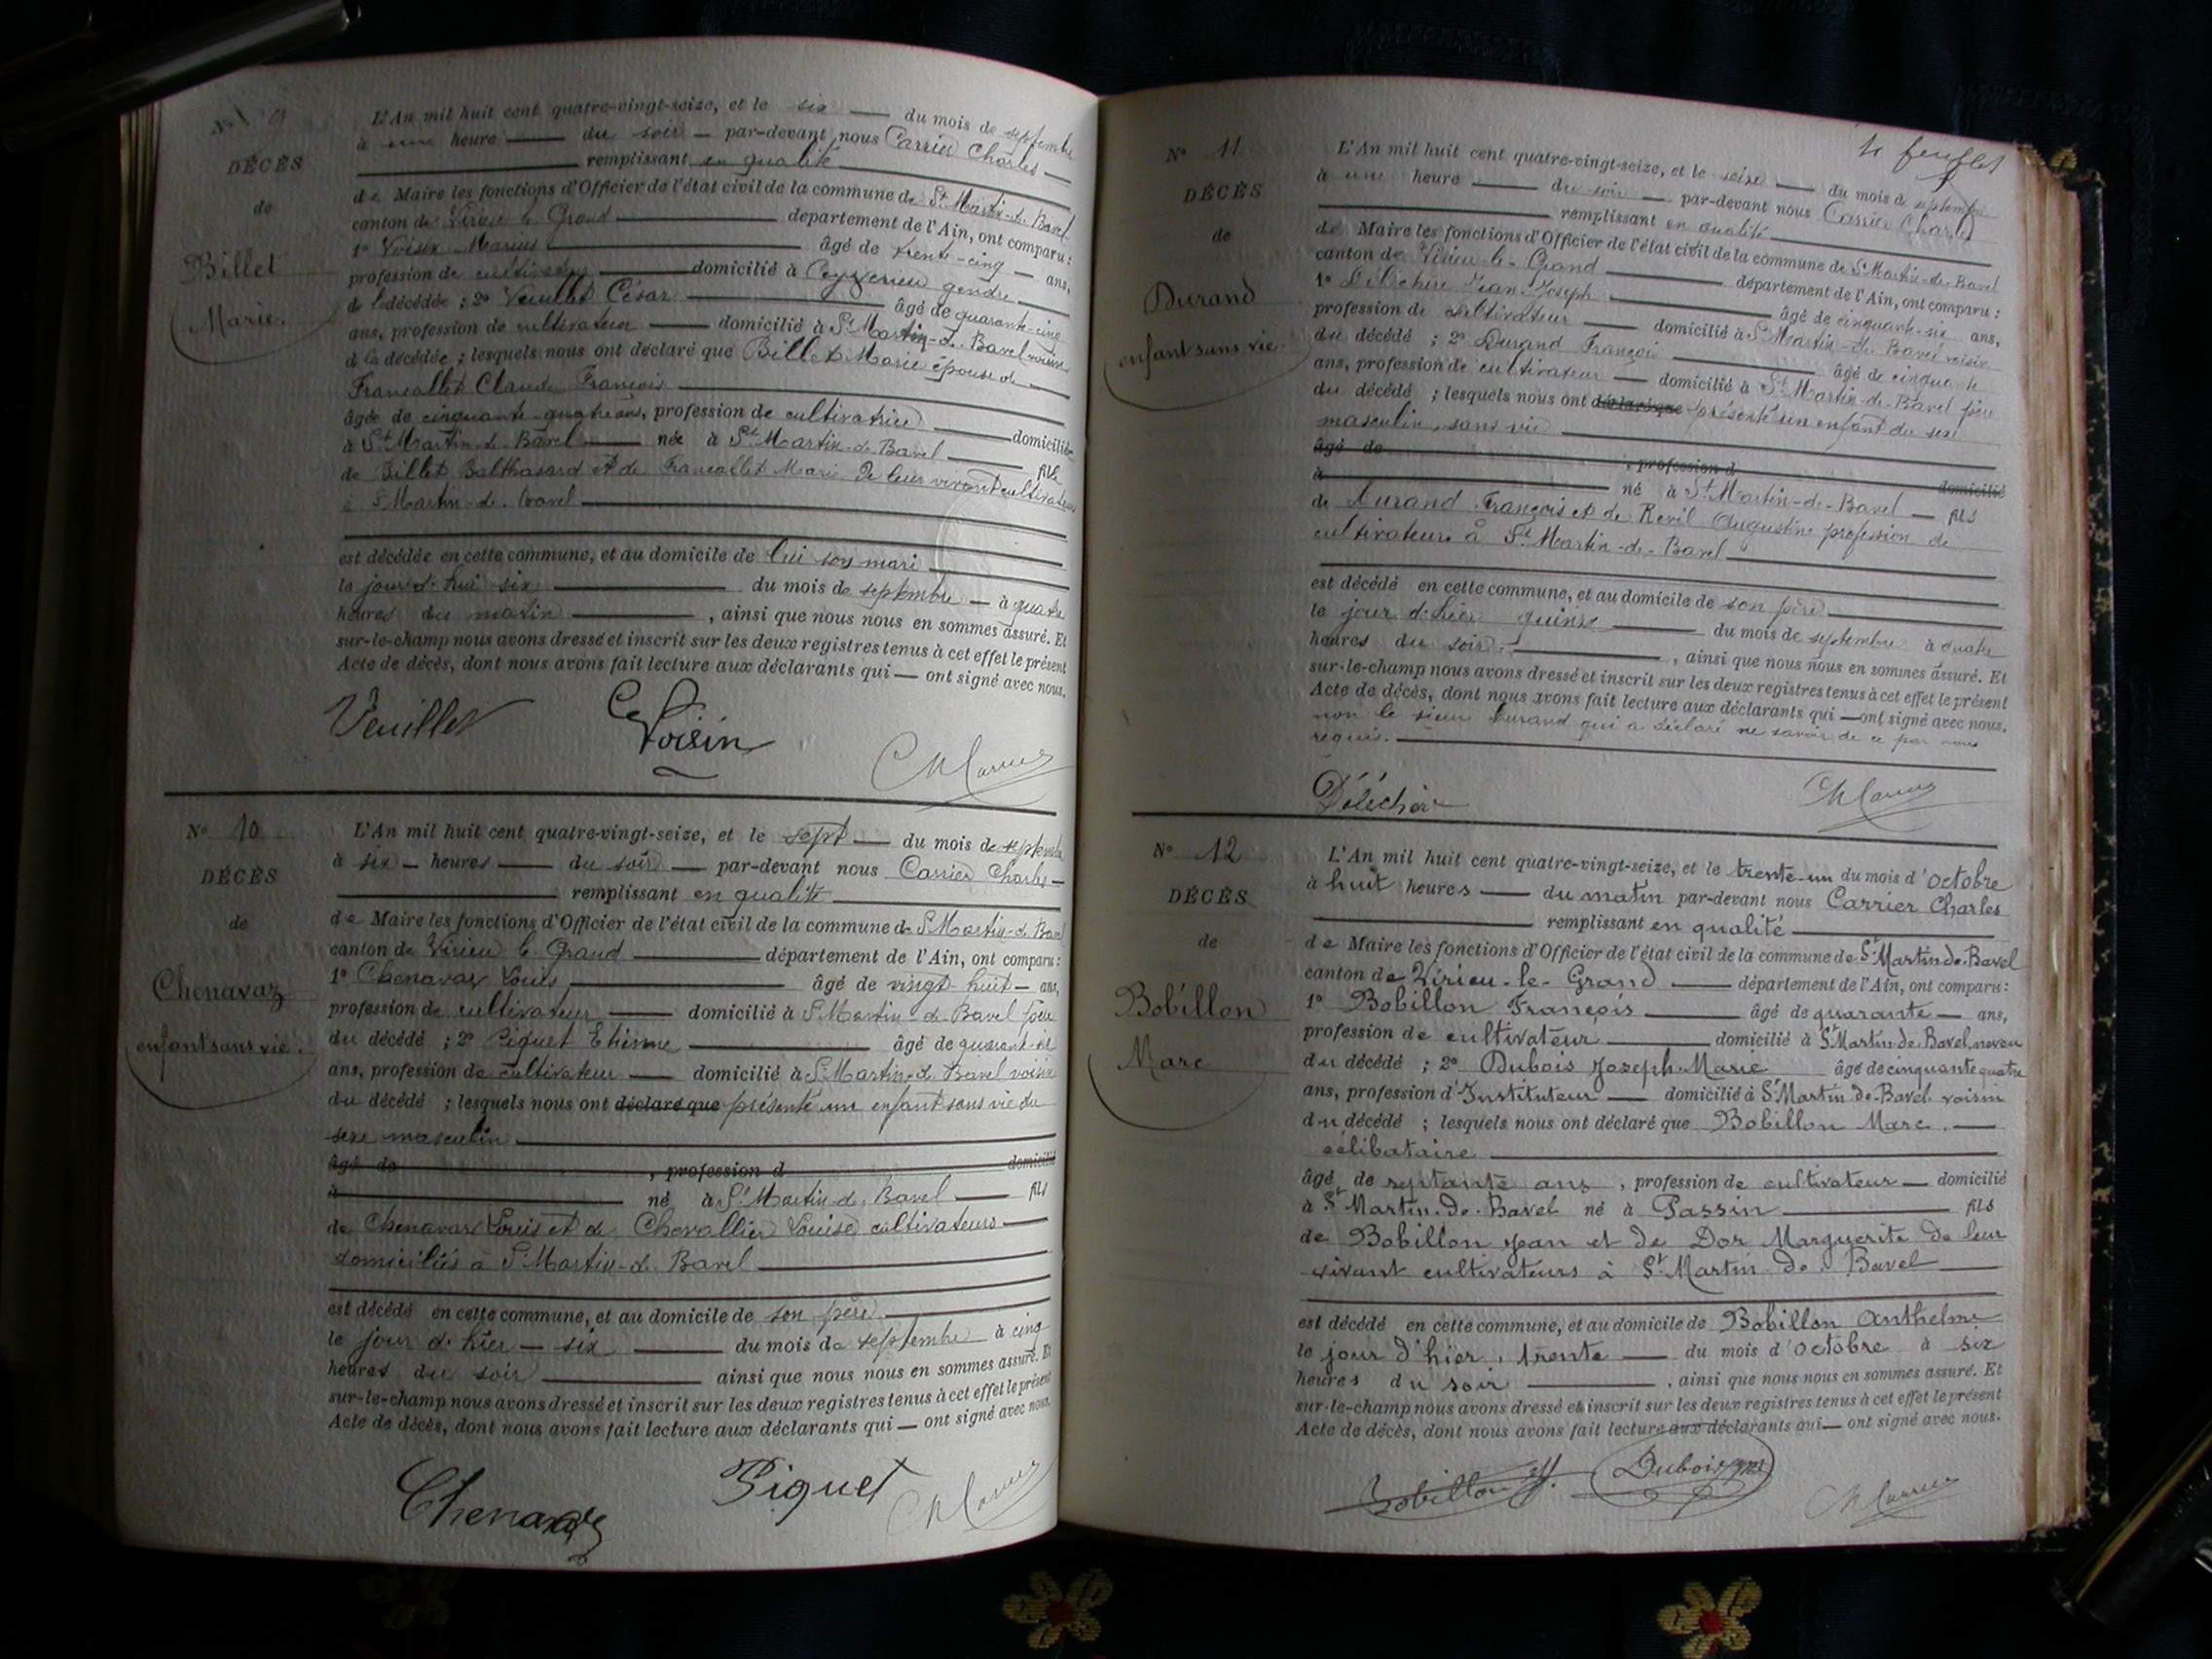 N° 9
DÉCÈS
de
Billet
Marie.
L'An mil huit cent quatre-vingt-seize, et le six du mois de septembre
à une heure du soir par-devant nous Carrier Charles
remplissant en qualité
de Maire les fonctions d'Officier de l'état civil de la commune de St Martin-de-Bavel
canton de Virieu le Grand département de l'Ain, ont comparu:
1° Voisin Marius âgé de trente-cinq ans,
profession de cultivateur domicilié à Ceyzerieu gendre
de la décédée; 2° Veuillet César âgé de quarante-cinq
ans, profession de cultivateur domicilié à St Martin-de-Bavel voisin
de la décédée; lesquels nous ont déclaré que Billet Marie épouse de
Francallet Claude François
âgée de cinquante-quatre ans, profession de cultivatrice domiciliée
à St Martin-de-Bavel née à St Martin-de-Bavel fille
de Billet Balthasard et de Francallet Marie De leur vivant cultivateurs
à St Martin-de-Bavel
est décédée en cette commune, et au domicile de lui son mari
le jour d'hui six du mois de septembre à quatre
heures du matin, ainsi que nous nous en sommes assuré. Et
sur-le-champ nous avons dressé et inscrit sur les deux registres tenus à cet effet le présent
Acte de décès, dont nous avons fait lecture aux déclarants qui ont signé avec nous.
Veuillet Voisin Ch Carrier
N° 10
DÉCÈS
de
Chenavaz
enfant sans vie.
L'An mil huit cent quatre-vingt-seize, et le sept du mois de septembre
à six heures du soir par-devant nous Carrier Charles
remplissant en qualité
de Maire les fonctions d'Officier de l'état civil de la commune de St Martin-de-Bavel
canton de Virieu le Grand département de l'Ain, ont comparu:
1° Chenavaz Louis âgé de vingt-huit ans,
profession de cultivateur domicilié à St Martin-de-Bavel père
du décédé; 2° Piguet Etienne âgé de
ans, profession de cultivateur domicilié à St Martin-de-Bavel voisin
du décédé; lesquels nous ont déclaré que présenté un enfant sans vie du
sexe masculin
âgé de, profession d domicilié
à né à St Martin-de-Bavel fils
de Chenavaz Louis et de Chevallier Louise cultivateurs
domiciliés à St Martin-de-Bavel
est décédé en cette commune, et au domicile de son père
le jour d'hier six du mois de septembre à cinq
heures du soir ainsi que nous nous en sommes assuré. Et
sur-le-champ nous avons dressé et inscrit sur les deux registres tenus à cet effet le présent
Acte de décès, dont nous avons fait lecture aux déclarants qui ont signé avec nous.
Chenavaz Piguet Ch Carrier
feuillet
N° 11
DÉCÈS
de
Durand
enfant sans vie.
L'An mil huit cent quatre-vingt-seize, et le seize du mois de septembre
à une heure du soir par-devant nous Carrier Charles
remplissant en qualité
de Maire les fonctions d'Officier de l'état civil de la commune de St Martin-de-Bavel
canton de Virieu-le-Grand département de l'Ain, ont comparu:
1° Jean-Joseph âgé de cinquante-six ans,
profession de cultivateur domicilié à St Martin-de-Bavel voisin
du décédé; 2° Durand François âgé de
ans, profession de cultivateur domicilié à St Martin-de-Bavel père
du décédé; lesquels nous ont déclaré que présenté un enfant du sexe
masculin, sans vie
âgé de, profession d domicilié
à né à St Martin-de-Bavel fils
de Durand François et de Revil Augustine profession de
cultivateurs à St Martin-de-Bavel
est décédé en cette commune, et au domicile de son père
le jour d'hier quinze du mois de septembre à quatre
heures du soir, ainsi que nous nous en sommes assuré. Et
sur-le-champ nous avons dressé et inscrit sur les deux registres tenus à cet effet le présent
Acte de décès, dont nous avons fait lecture aux déclarants qui ont signé avec nous.
non le sieur Durand qui a déclaré ne savoir de ce par nous
requis.
Ch Carrier
N° 12
DÉCÈS
de
Bobillon
Marc
L'An mil huit cent quatre-vingt-seize, et le trente-un du mois d'octobre
à huit heures du matin par-devant nous Carrier Charles
remplissant en qualité
de Maire les fonctions d'Officier de l'état civil de la commune de St Martin de Bavel
canton de Virieu-le-Grand département de l'Ain, ont comparu:
1° Bobillon François âgé de quarante ans,
profession de cultivateur domicilié à St Martin de Bavel, neveu
du décédé; 2° Dubois Joseph Marie âgé de cinquante quatre
ans, profession d'Instituteur domicilié à St Martin de-Bavel voisin
du décédé; lesquels nous ont déclaré que Bobillon Marc.
célibataire
âgé de septante ans, profession de cultivateur domicilié
à St Martin-de-Bavel né à Passin fils
de Bobillon Jean et de Dor Marguerite de leur
vivant cultivateurs à St Martin de Bavel
est décédé en cette commune, et au domicile de Bobillon Anthelme
le jour d'hier, trente du mois d'octobre à six
heures du soir, ainsi que nous nous en sommes assuré. Et
sur-le-champ nous avons dressé et inscrit sur les deux registres tenus à cet effet le présent
Acte de décès, dont nous avons fait lecture aux déclarants qui ont signé avec nous.
Bobillon Dubois Ch Carrier